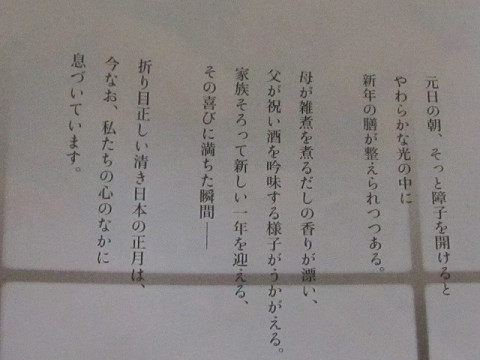 元日の朝、そっと障子を開けると
やわらかな光の中に
新年の膳が整えられつつある。
母が雑煮を煮るだしの香りが漂い、
父が祝い酒を吟味する様子がうかがえる。
家族そろって新しい一年を迎える、
その喜びに満ちた瞬間――
折り目正しい清き日本の正月は、
今なお、私たちの心のなかに
息づいています。